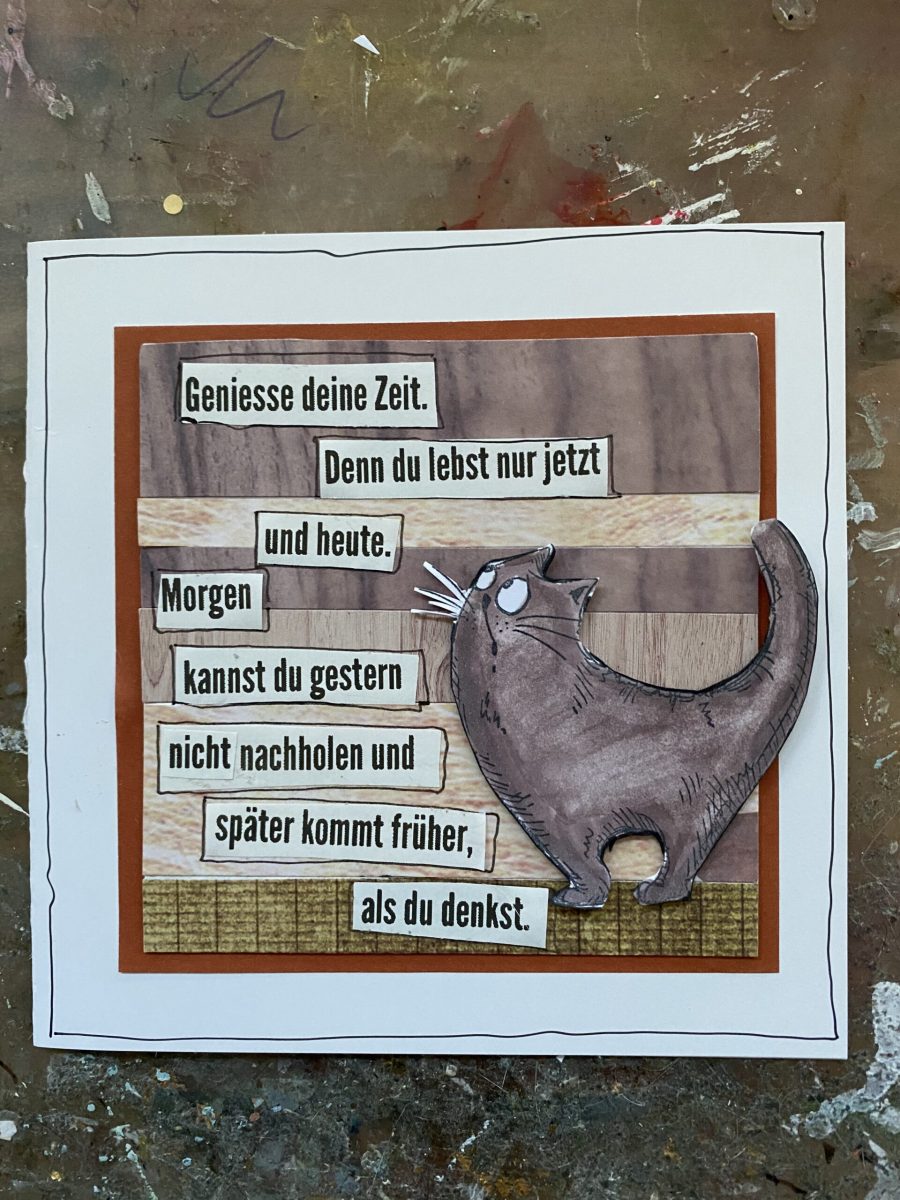 Geniesse deine Zeit.
Denn du lebst nur jetzt
und heute.
Morgen
kannst du gestern
nicht nachholen und
später kommt früher,
als du denkst.